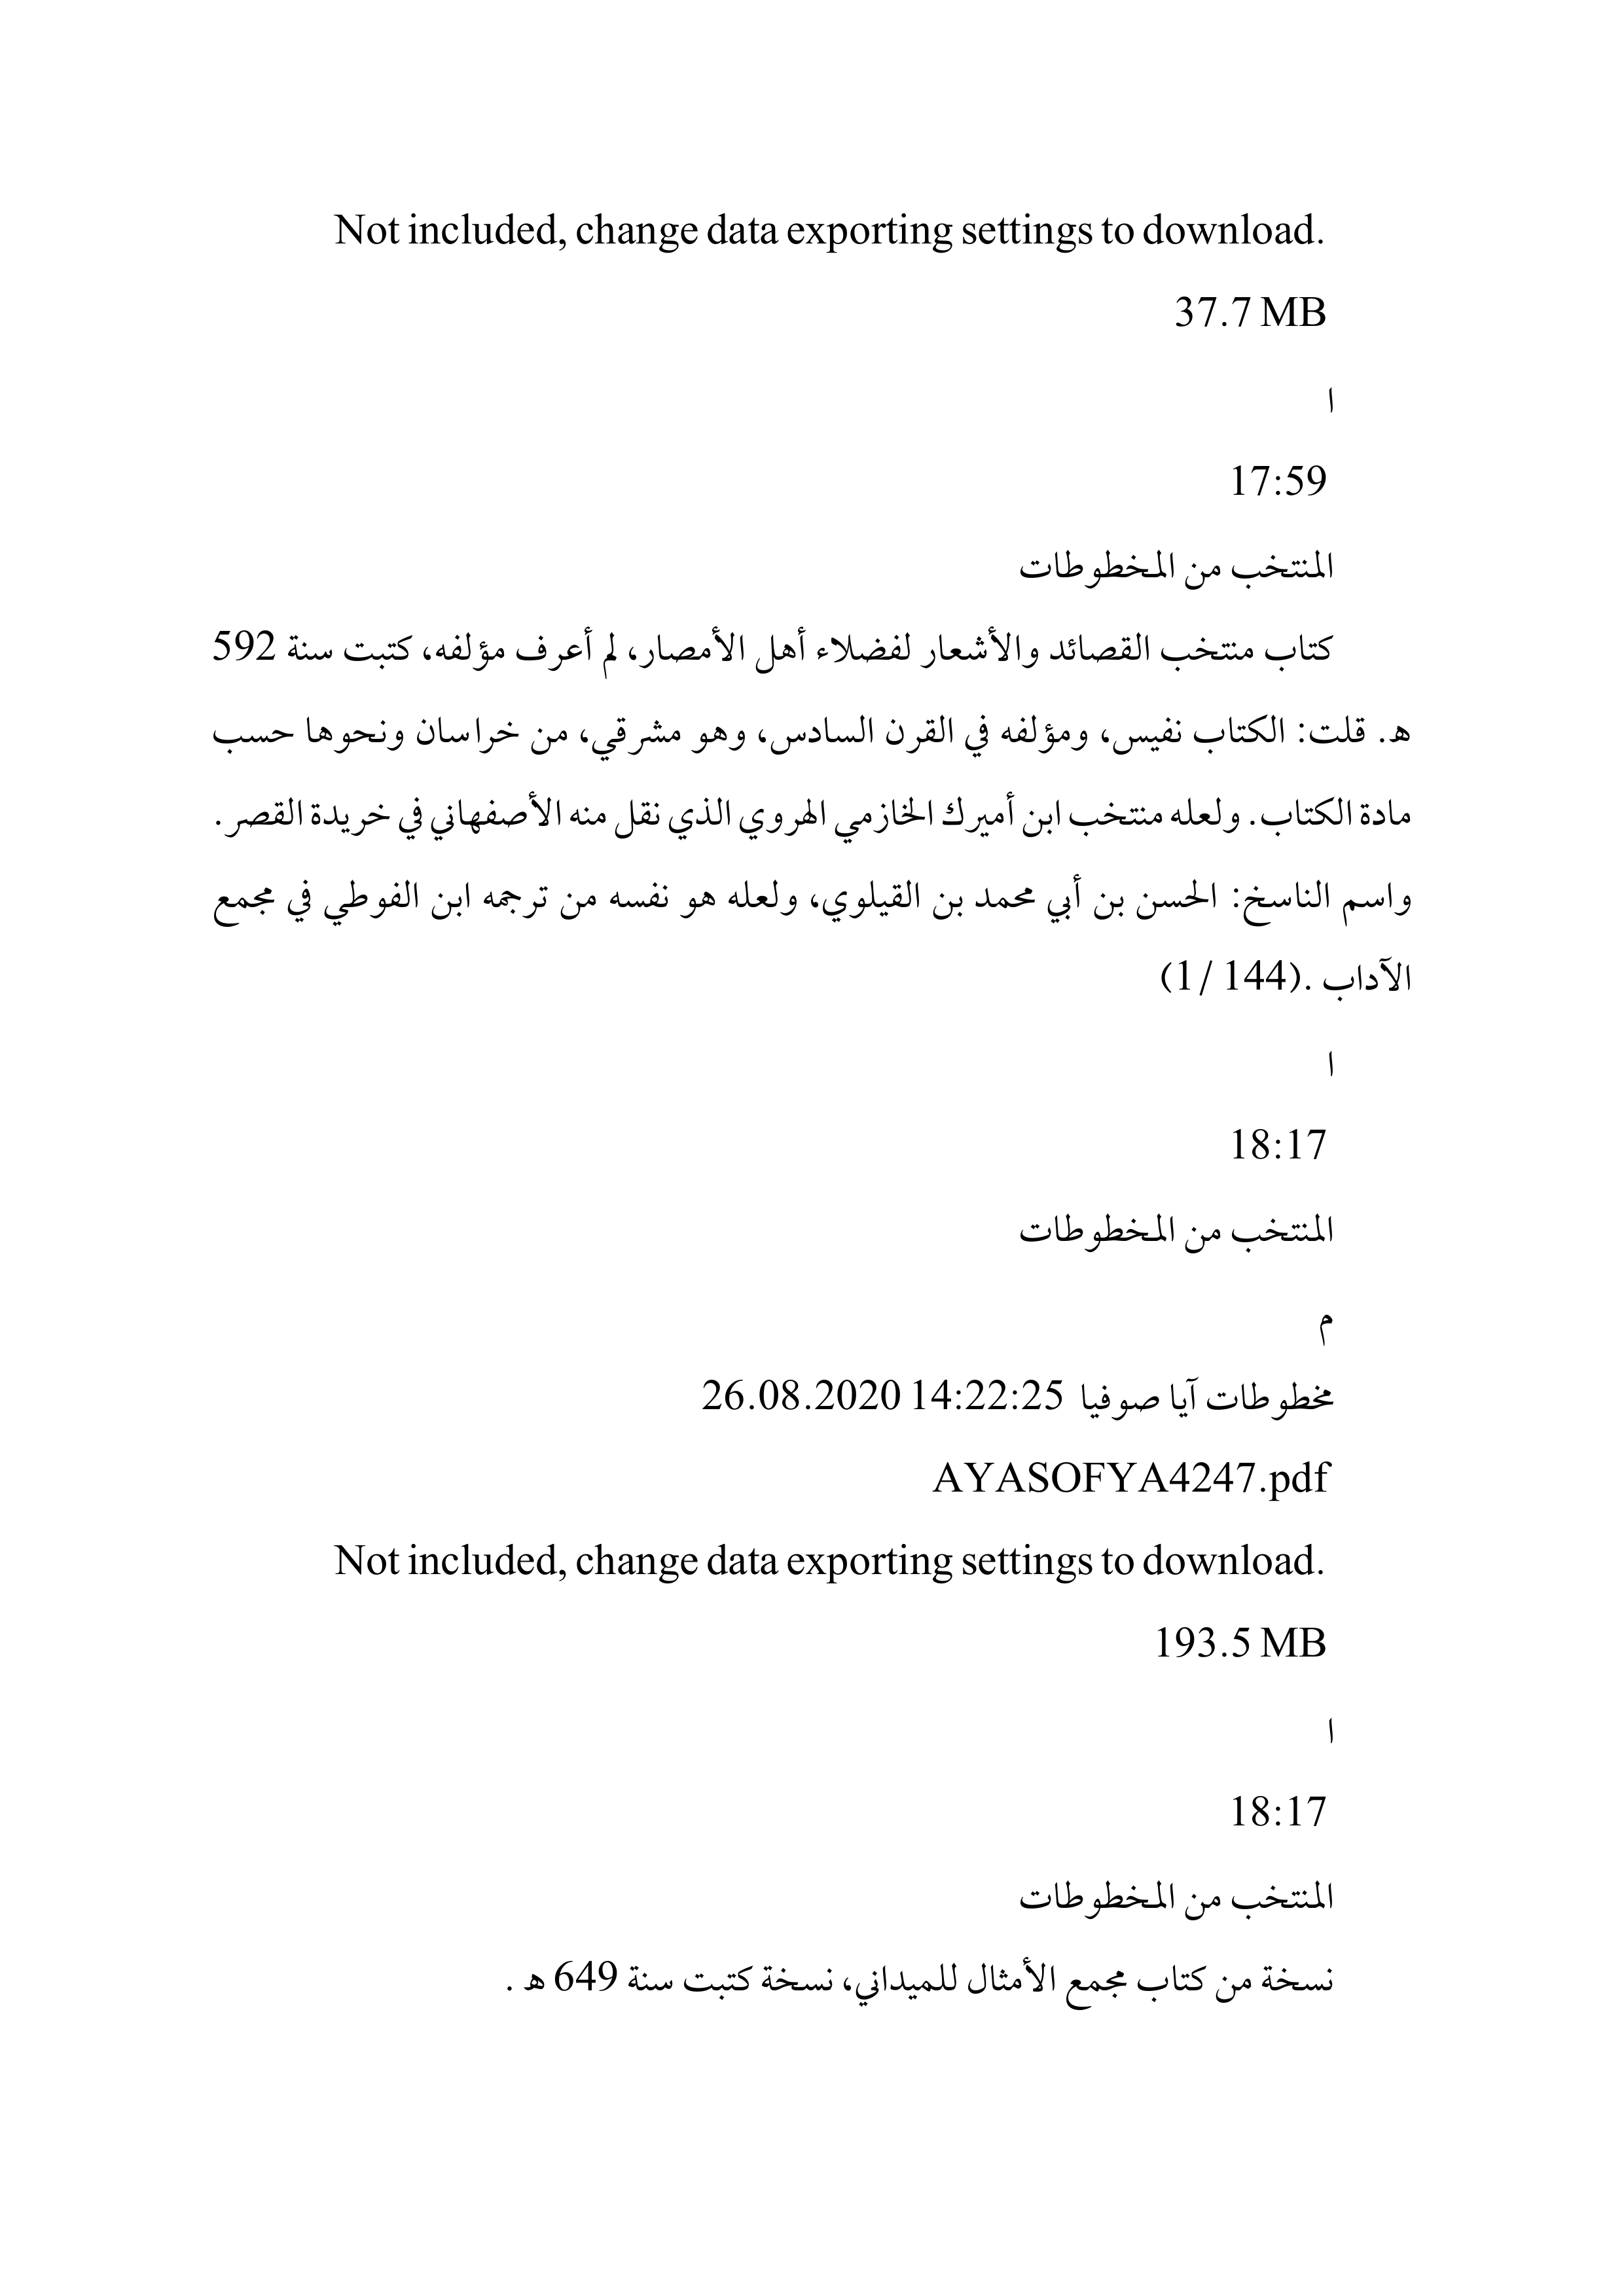 Not included, change data exporting settings to download.
37.7 MB
ا
17:59
المنتخب من المخطوطات
كتاب منتخب القصائد والأشعار لفضلاء أهل الأمصار، لم أعرف مؤلفه، كتبت سنة 592
ه. قلت: الكتاب نفيس، ومؤلفه في القرن السادس، وهو مشرقي، من خراسان ونحوها حسب
مادة الكتاب. ولعله منتخب ابن أميرك الخازمي الهروي الذي نقل منه الأصفهاني في خريدة القصر.
واسم الناسخ: الحسن بن أبي محمد بن القيلوي، ولعله هو نفسه من ترجمه ابن الفوطي في مجمع
الآداب .(144 /1)
ا
18:17
المنتخب من المخطوطات
م
مخطوطات آيا صوفيا 26.08.2020 14:22:25
AYASOFYA4247.pdf
Not included, change data exporting settings to download.
193.5 MB
ا
18:17
المنتخب من المخطوطات
نسخة من كتاب مجمع الأمثال للميداني، نسخة كتبت سنة 649 ه .